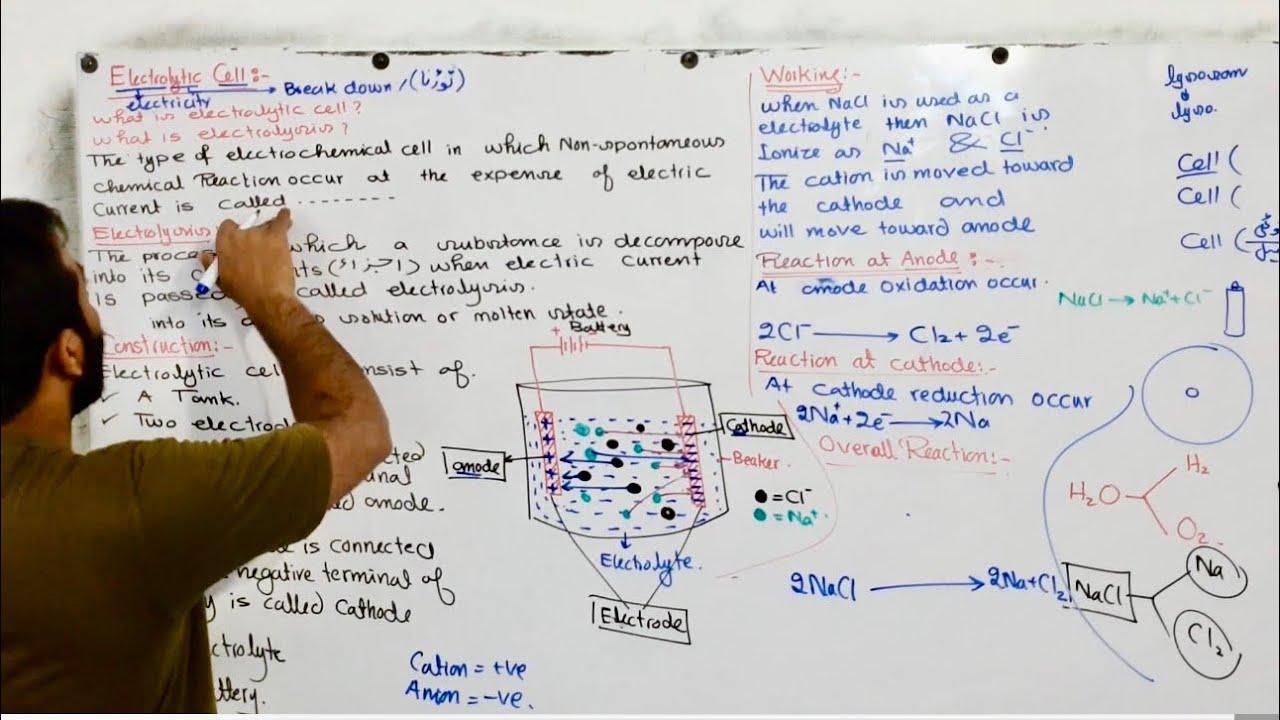 Electrolytic Cell:-
electricity
Break down / (توڑنا)
What is electrolytic cell?
What is electrolysis?
The type of electrochemical cell in which Non-spontaneous
chemical Reaction occur at the expense of electric
Current is called --------
Electrolysis
The proce which a substance is decompose
into its (اجزاء) when electric current
is passed called electrolysis.
into its solution or molten state.
Construction:-
Electrolytic cel nsist of.
✓ A Tank.
✓ Two electrod
cted
anode.
is connected
negative terminal of
y is called Cathode
ctrolyte
ttery.
Cation = +ve
Anion = -ve.
+ Battery
anode
Cathode
Beaker.
● = Cl⁻
● = Na⁺.
Electrolyte.
Electrode
Working:-
when NaCl is used as a
electrolyte then NaCl is
Ionize as Na⁺ & Cl⁻.
The cation is moved toward
the cathode and
will move toward anode
Reaction at Anode:-
At anode oxidation occur.
2Cl⁻ → Cl₂ + 2e⁻
Reaction at cathode:-
At cathode reduction occur
2Na⁺ + 2e⁻ → 2Na
Overall Reaction:-
2NaCl → 2Na + Cl₂
lyso.
Cell (
Cell (
Cell (
NaCl → Na⁺ + Cl⁻
H₂O
H₂
O₂
NaCl
Na
Cl₂